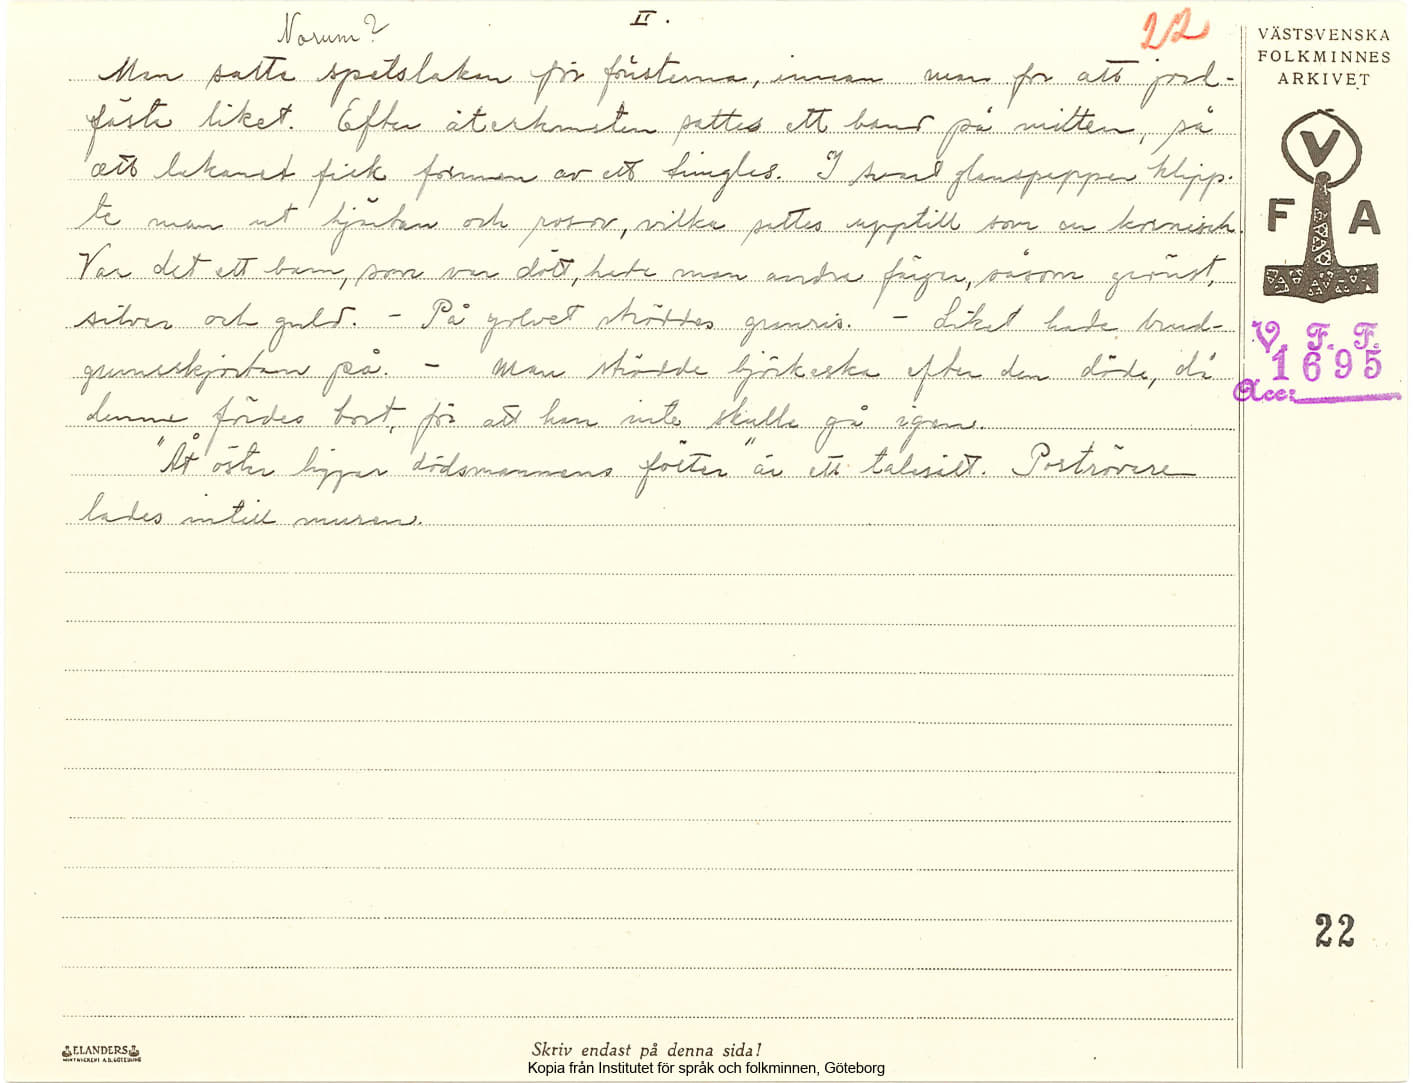 Norum?
II.
22
Man satte spetslakan för fönsterna, innan man for att jord-
fästa liket. Efter återkomsten sattes ett band på mitten, så
att lakanet fick formen av ett timglas. I svart glanspapper klipp-
te man ut hjärtan och rosor, vilka sattes upptill som en kornisch.
Var det ett barn, som var dött, hade man andra färger, såsom grönst,
silver och guld. - På golvet ströddes granris. - Liket hade brud-
gumsskjortan på. - Man strödde björkaska efter den döde, då
denne fördes bort, för att han inte skulle gå igen.
"Åt öster ligger dödsmannens fötter" är ett talesätt. Poströvare
lades intill muren.
VÄSTSVENSKA
FOLKMINNES
ARKIVET
V
F A
V. F. F.
1695
Acc:
22
ELANDERS
Skriv endast på denna sida!
Kopia från Institutet för språk och folkminnen, Göteborg